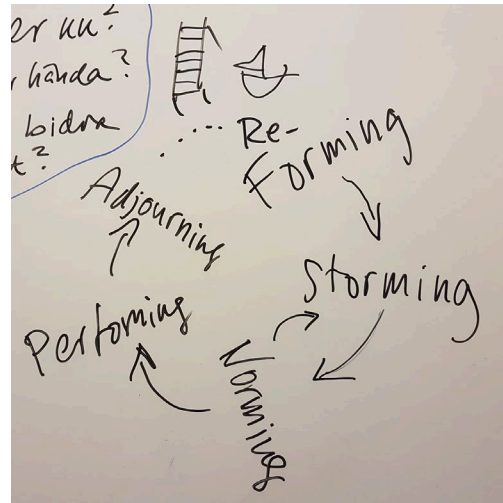 er nu?
hända?
bidra
t?
Re-
Forming
Storming
Norming
Performing
Adjourning